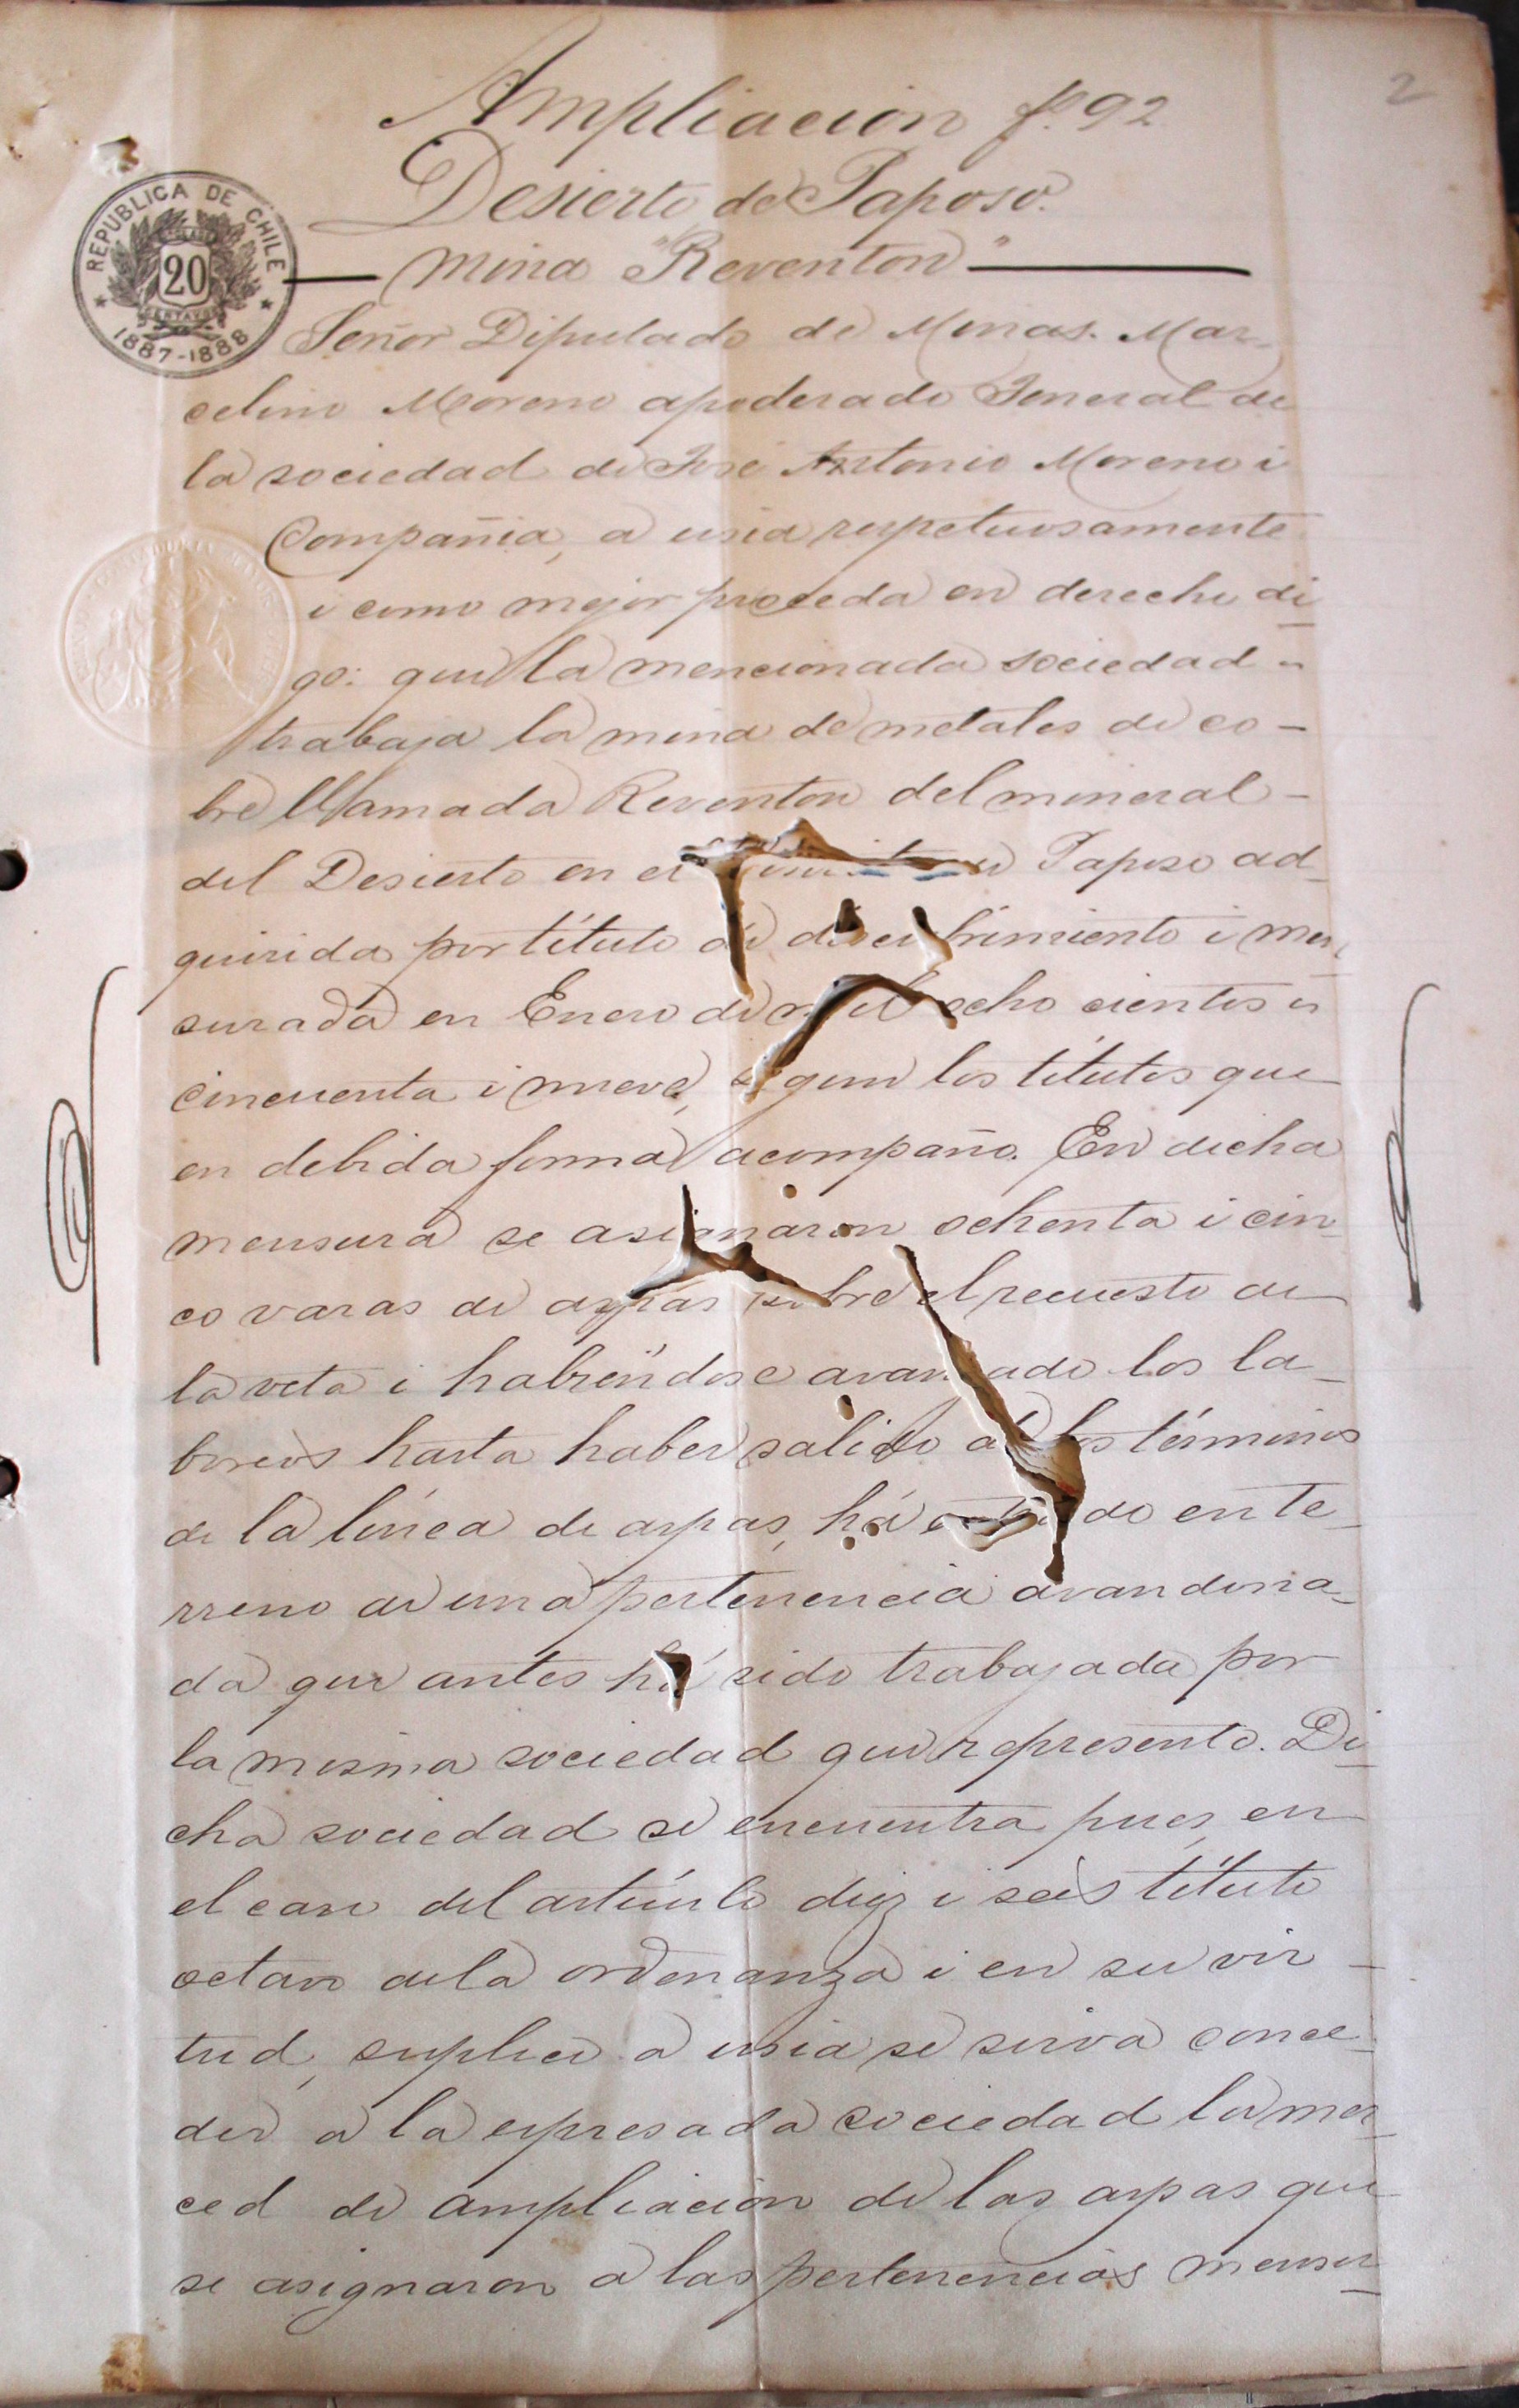 2
Ampliacion f. 92
Desierto de Paposo.
Mina "Reventon"
REPUBLICA DE CHILE
20
CENTAVOS
1887-1888
Señor Diputado de Minas. Mar-
celino Moreno apoderado Jeneral de
la sociedad de José Antonio Moreno i
Compañia, a usia respetuosamente
i como mejor proceda en derecho di
go: que la mencionada sociedad
trabaja la mina de metales de co-
bre llamada Reventon del mineral
del Desierto en el Paposo ad-
quirida por título de descubrimiento i men-
surada en Enero de mil ocho cientos
cincuenta i nueve, segun los títulos que
en debida forma acompaño. En dicha
mensura se asignaron ochenta i cin-
co varas de aspas sobre el recuesto de
la veta i habiéndose avanzado los la-
boreos hasta haber salido a los términos
de la línea de aspas, há do en te-
rreno de una pertenencia avandona-
da que antes há sido trabajada por
la misma sociedad que represento. Di-
cha sociedad se encuentra pues, en
el caso del artículo diez i seis título
octavo de la ordenanza i en su vir-
tud, suplico a usia se sirva conce-
der a la espresada sociedad la mer-
ced de ampliación de las aspas que
se asignaron a las pertenencias mensu-